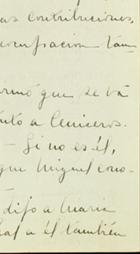 as contribuciones,
ocupacion tam
ormó que se va
nto a Ceniceros.
- Si no es él,
que Miguel cono-
dijo a María
a él también